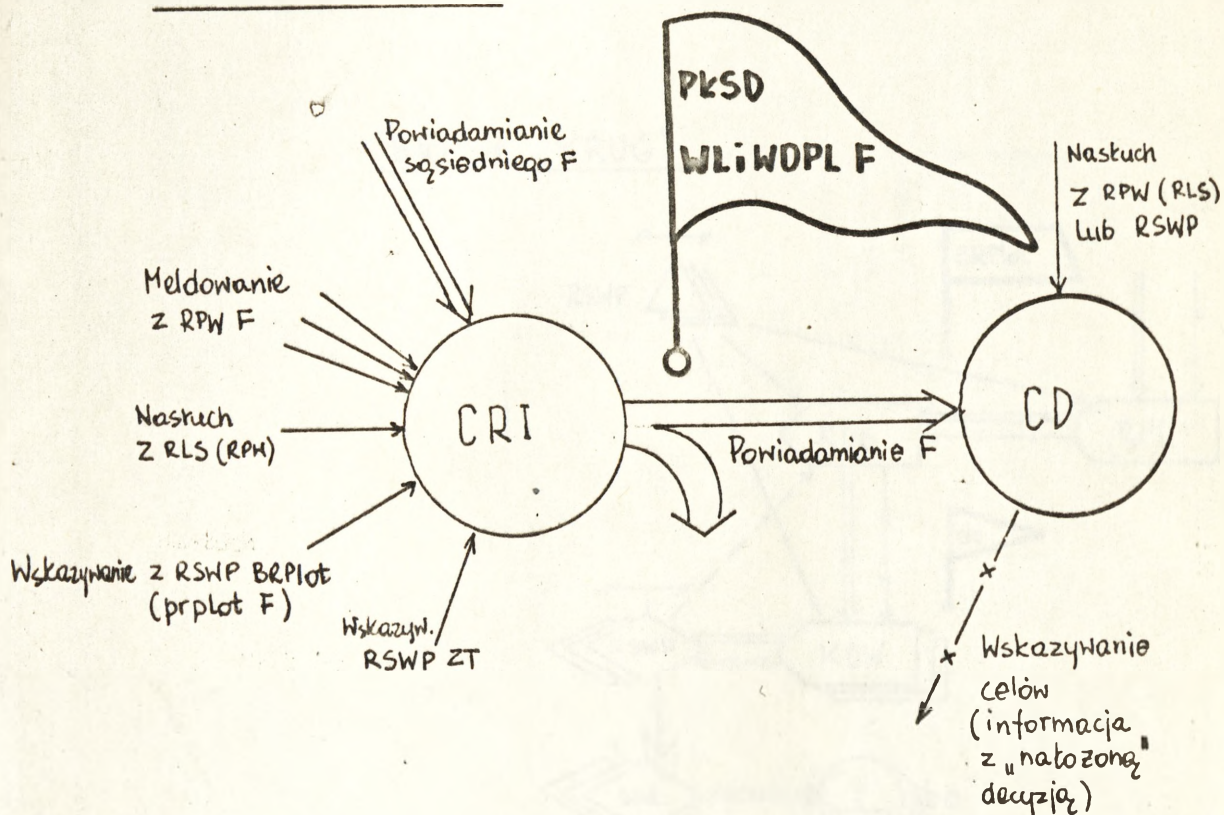 Powiadamianie
sąsiedniego F
PKSD
WLiWOPL F
Nasłuch
z RPW (RLS)
lub RSWP
Meldowanie
z RPW F
Nasłuch
z RLS (RPW)
CRI
CD
Powiadamianie F
Wskazywanie z RSWP BRPlot
(prplot F)
Wskazyw.
RSWP ZT
Wskazywanie
celów
(informacja
z „nałożoną"
decyzją)